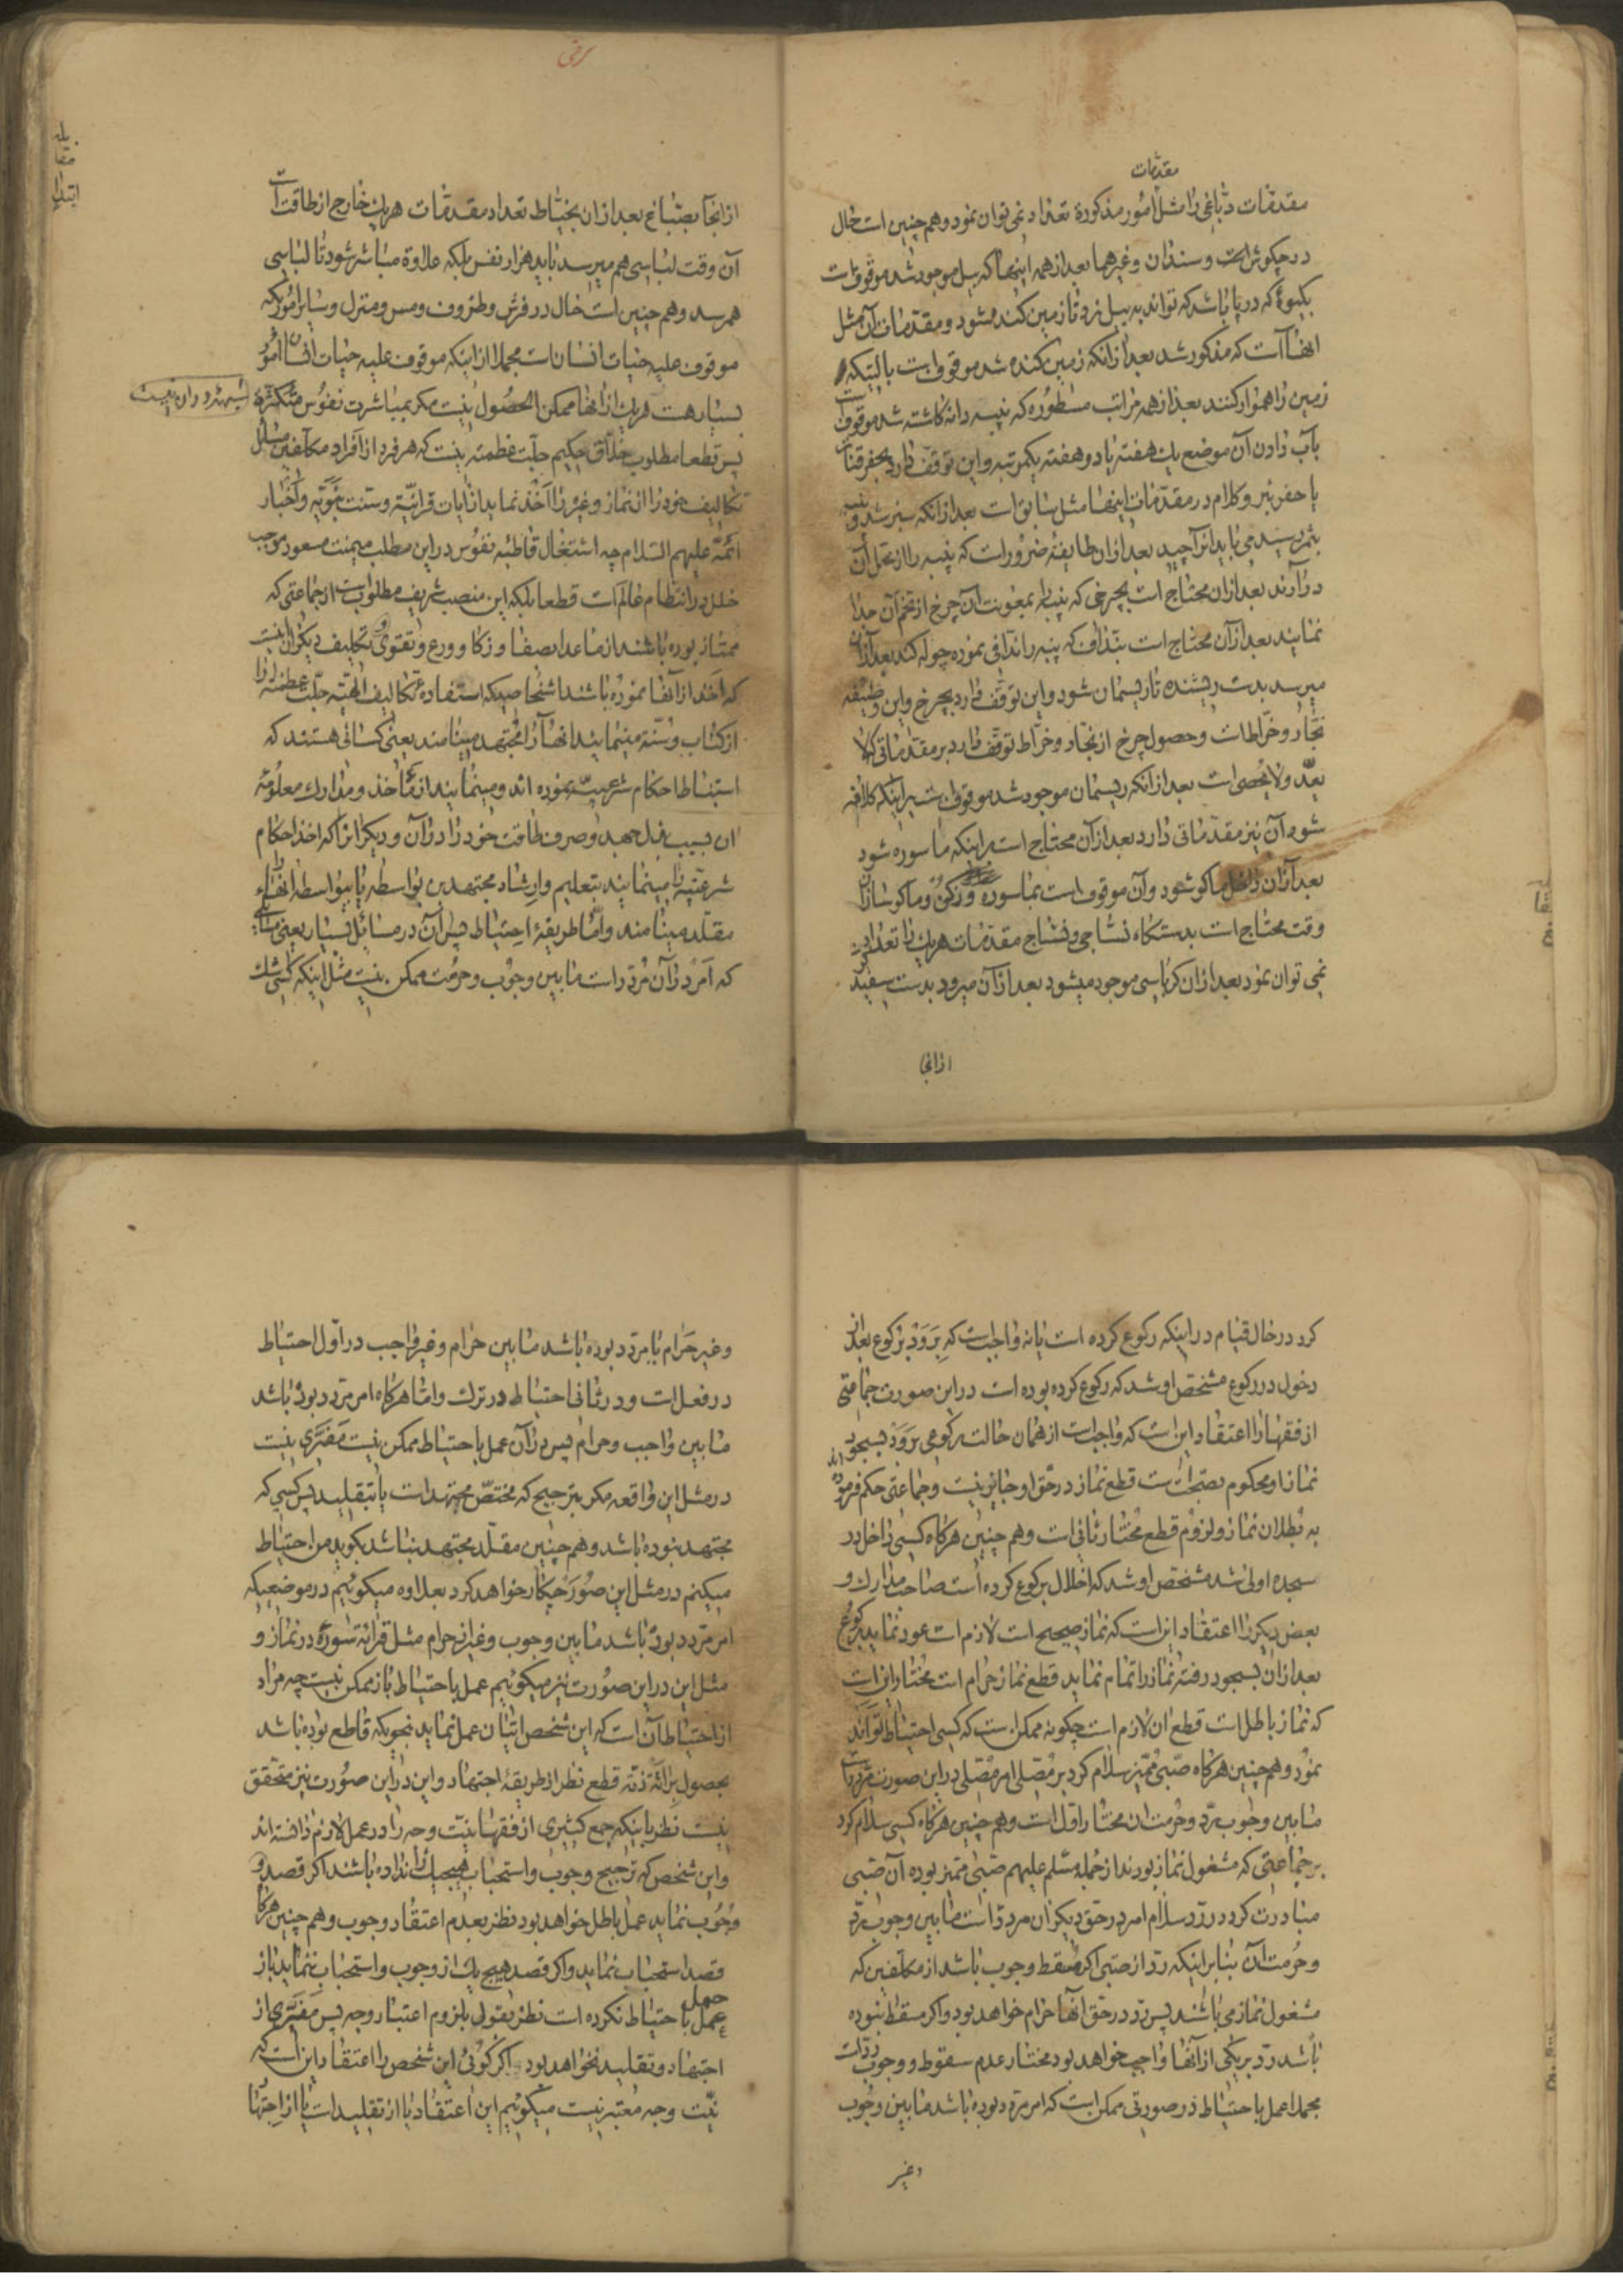 مقدمات
مقدمات دباغی را مثل امور مذکوره تعداد نمی توان نمود و هم چنین است حال
در چکوش است و سندان و غیرهما بعد از همه اینها که بیل موجود شد موقوفست
که در پا باشد که تواند به بیل زد تا زمین کنده شود و مقدمات آن مثل
آنهاست که مذکور شد بعد از آنکه زمین کنده شد موقوف است
زمین را هموار کنند بعد از همه مراتب مسطوره که پنبه دانه کاشته شد موقوفست
بآب دادن آن موضع یک هفته یا دو هفته یکمرتبه و این توقف دارد بحفر قنات
یا حفر بئر و کلام در مقدمات اینها مثل سابق است بعد از آنکه سبز شد و
بثمر رسید می باید آنرا چید بعد از آن طایفه ضرور است که پنبه را از محل آن
در آرند بعد از آن محتاج است بچرخی که پنبه را بمعونت آن چرخ از تخم آن جدا
نمایند بعد از آن محتاج است بنداف که پنبه را ندافی نموده چوله کند بعد از آن
میرسد بدست ریسنده تا ریسمان شود و این توقف دارد بچرخ و این وظیفه
نجار و خراطست و حصول چرخ از نجار و خراط توقف دارد بر مقدماتی که لا
یعد و لا یحصی است بعد از آنکه ریسمان موجود شد موقوف است بر اینکه کلافه
شود آن نیز مقدماتی دارد بعد از آن محتاج است بر اینکه ماسوره شود
بعد از آن داخل ماکو شود و آن موقوف است بماسوره و ماکو ساز آن
وقت محتاج است بدستگاه نساجی و نساج مقدمات هر یک را تعداد
نمی توان نمود بعد از آن کرباسی موجود میشود بعد از آن میرود بدست سفید
از آنجا
از آنجا بصباغ بعد از آن بخیاط تعداد مقدمات هر یک خارج از طاقت است
آن وقت لباسی هم میرسد باید هزار نفس بلکه علاوه مباشر شود تا لباسی
همرسد و هم چنین است حال در فرش و ظروف و مس و منزل و سایر اموریکه
موقوف علیه حیات انسان است مجملا از اینکه موقوف علیه حیات انسان امور
بسیار هست هر یک از آنها ممکن الحصول نیست مگر بمباشرت نفوس متکثره
پس قطعا مطلوب خلاق حکیم جلت عظمته نیست که هر فرد از افراد مکلفین مسایل
تکالیف خود را از نماز و غیره را اخذ نماید از آیات قرآنیه و سنت نبویه و اخبار
ائمه علیهم السلام چه اشتغال قاطبه نفوس در این مطلب میمنت مسعود موجب
خلل در انتظام عالم است قطعا بلکه این منصب شریف مطلوبست از جماعتی که
ممتاز بوده باشند از ماعدا بصفا و زکا و ورع و تقوی و تکلیف دیگران اینست
که اخذ از آنها نموده باشند اشخاصیکه استفاده تکالیف الهیه جلت عظمته را
از کتاب و سنة مینمایند آنها را مجتهد مینامند یعنی کسانی هستند که
استنباط احکام شرعیه نموده اند و مینمایند از مآخذ و مدارک معلومه
آن بسبب بذل جهد و صرف طاقت خود را در آن و دیگرانرا که اخذ احکام
شرعیه را مینمایند بتعلیم و ارشاد مجتهدین بواسطه یا بیواسطه آنها را
مقلد مینامند و اما طریقه احتیاط پس آن در مسائل بسیار یعنی مسائلی
که امر در آن مردد است مابین وجوب و حرمت ممکن نیست مثل اینکه کسی شک
کرد در حال قیام در اینکه رکوع کرده است یا نه واجبست که برود برکوع بعد از
دخول در رکوع مشخص او شد که رکوع کرده بوده است در این صورت جماعتی
از فقها را اعتقاد این است که واجبست از همان حالت رکوعی برود بسجود
نماز او محکوم بصحت است قطع نماز در حق او جایز نیست و جماعتی حکم فرموده اند
به بطلان نماز و لزوم قطع مختار ثانی است و هم چنین هرگاه کسی داخل در
سجده اولی شد مشخص او شد که اخلال برکوع کرده است صاحب مدارک و
بعض دیگر را اعتقاد این است که نماز صحیح است لازم است عود نماید برکوع
بعد از آن بسجود رفته نماز را تمام نماید قطع نماز حرام است مختار این است
که نماز باطل است قطع آن لازم است چگونه ممکن است که کسی احتیاط تواند
نمود و هم چنین هرگاه صبی ممیز سلام کرد بر مصلی امر مصلی در این صورت مردد است
مابین وجوب رد و حرمت آن مختار اول است و هم چنین هرگاه کسی سلام کرد
بر جماعتی که مشغول نماز بودند از جمله مسلم علیهم صبی ممیز بوده آن صبی
مبادرت کرد در رد سلام امر در حق دیگران مردد است مابین وجوب رد
و حرمت آن بنابر اینکه رد از صبی اگر مسقط وجوب باشد از مکلفین که
مشغول نماز می باشند پس رد در حق آنها حرام خواهد بود و اگر مسقط نبوده
باشد رد بر یکی از آنها واجب خواهد بود مختار عدم سقوط و وجوب رد است
مجملا عمل باحتیاط در صورتی ممکن است که امر مردد بوده باشد مابین وجوب
و غیر
و غیر حرام یا مردد بوده باشد مابین حرام و غیر واجب در اول احتیاط
در فعل است و در ثانی احتیاط در ترک و اما هرگاه امر مردد بوده باشد
مابین واجب و حرام پس در آن عمل باحتیاط ممکن نیست مفری نیست
در مثل این واقعه مگر بترجیح که مختص مجتهد است یا بتقلید پس کسی که
مجتهد نبوده باشد و هم چنین مقلد مجتهد نباشد بگوید من احتیاط
میکنم در مثل این صور چکار خواهد کرد بعلاوه میگوئیم در موضعیکه
امر مردد بوده باشد مابین وجوب و غیر حرام مثل قرائة سوره در نماز و
مثل این در این صورت نیز میگوئیم عمل باحتیاط باز ممکن نیست چه مراد
از احتیاط آن است که این شخص اتیان عمل نماید بنحویکه قاطع بوده باشد
بحصول برائة ذمه قطع نظر از طریقه اجتهاد و این در این صورت نیز متحقق
نیست نظر باینکه جمع کثیری از فقها نیت وجه را در عمل لازم دانسته اند
و این شخص که ترجیح وجوب و استحباب هیچیک را نداده باشند اگر قصد
وجوب نماید عمل باطل خواهد بود نظر بعدم اعتقاد وجوب و هم چنین هرگاه
قصد استحباب نماید و اگر قصد هیچ یک از وجوب و استحباب ننماید باز
عمل باحتیاط نکرده است نظر بقول بلزوم اعتبار وجه پس مفری از
اجتهاد و تقلید نخواهد بود اگر گوئی این شخص را اعتقاد این است که
نیت وجه معتبر نیست میگوئیم این اعتقاد یا از تقلید است یا از اجتهاد